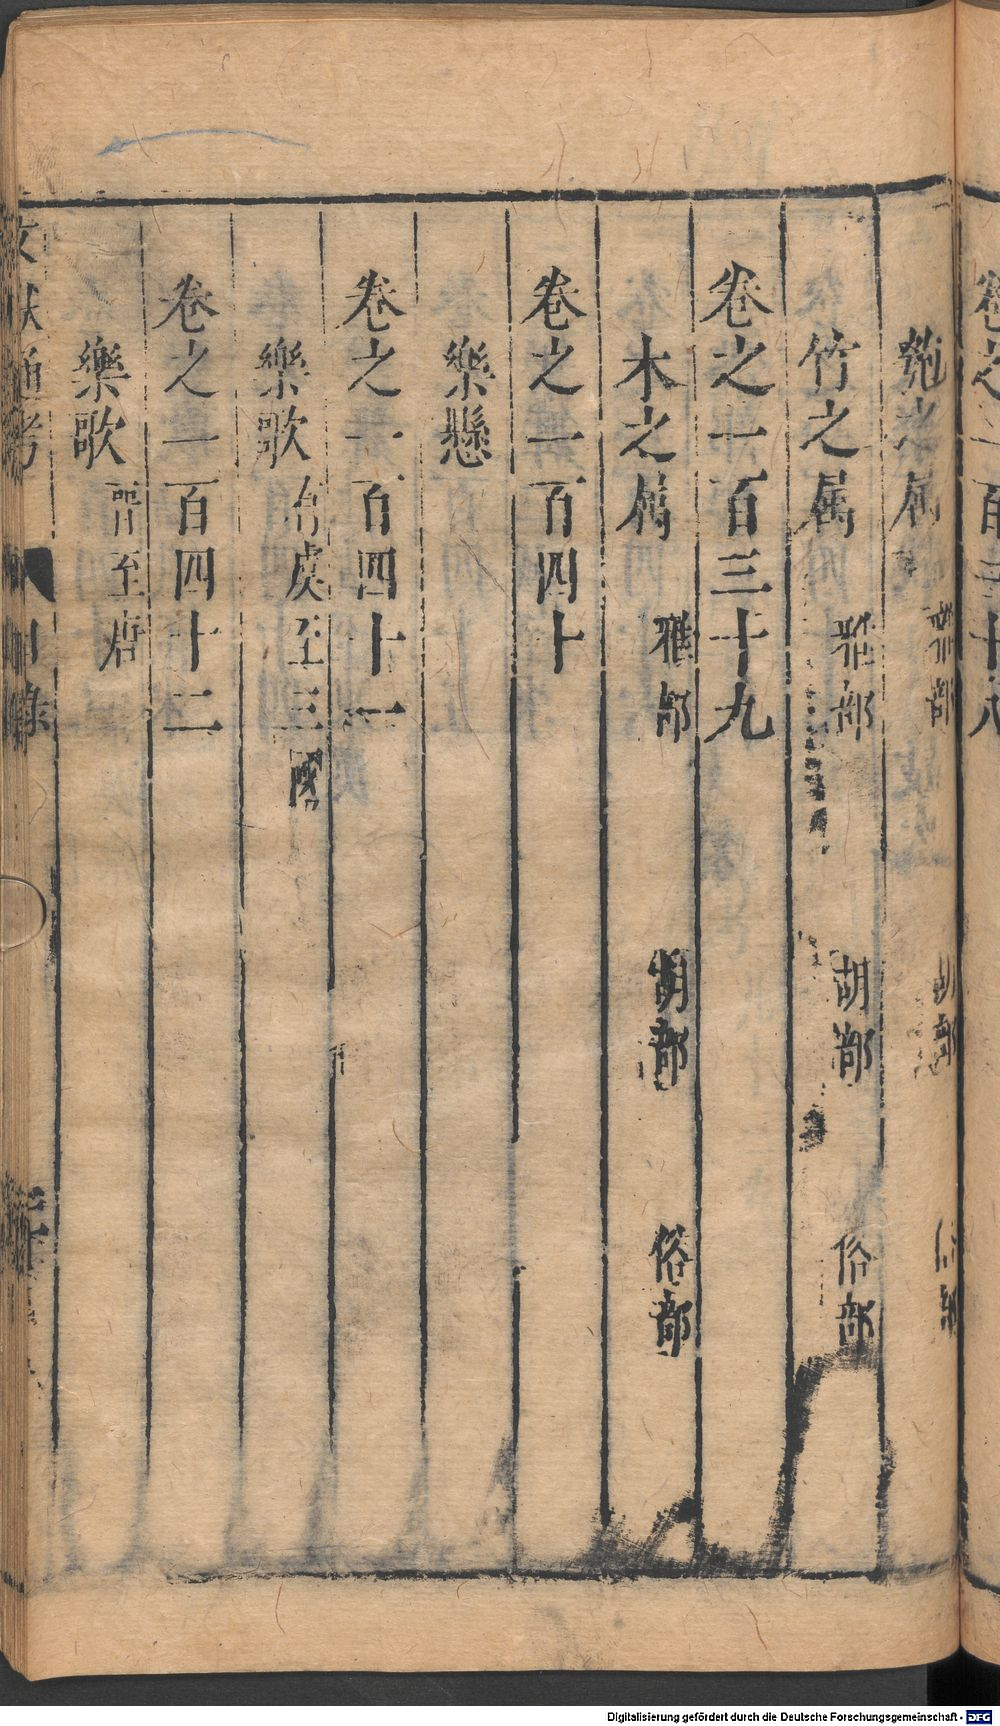 匏之属 雅部 胡部 俗部
竹之属 雅部 胡部 俗部
卷之一百三十九
木之属 雅部 胡部 俗部
卷之一百四十
樂懸
卷之一百四十一
樂歌 自虞至三國
卷之一百四十二
樂歌 晉至唐
文獻通考 目錄
Digitalisierung gefördert durch die Deutsche Forschungsgemeinschaft - DFG